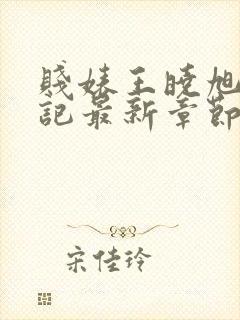 賤婊王曉旭
記最新章節
宋佳玲